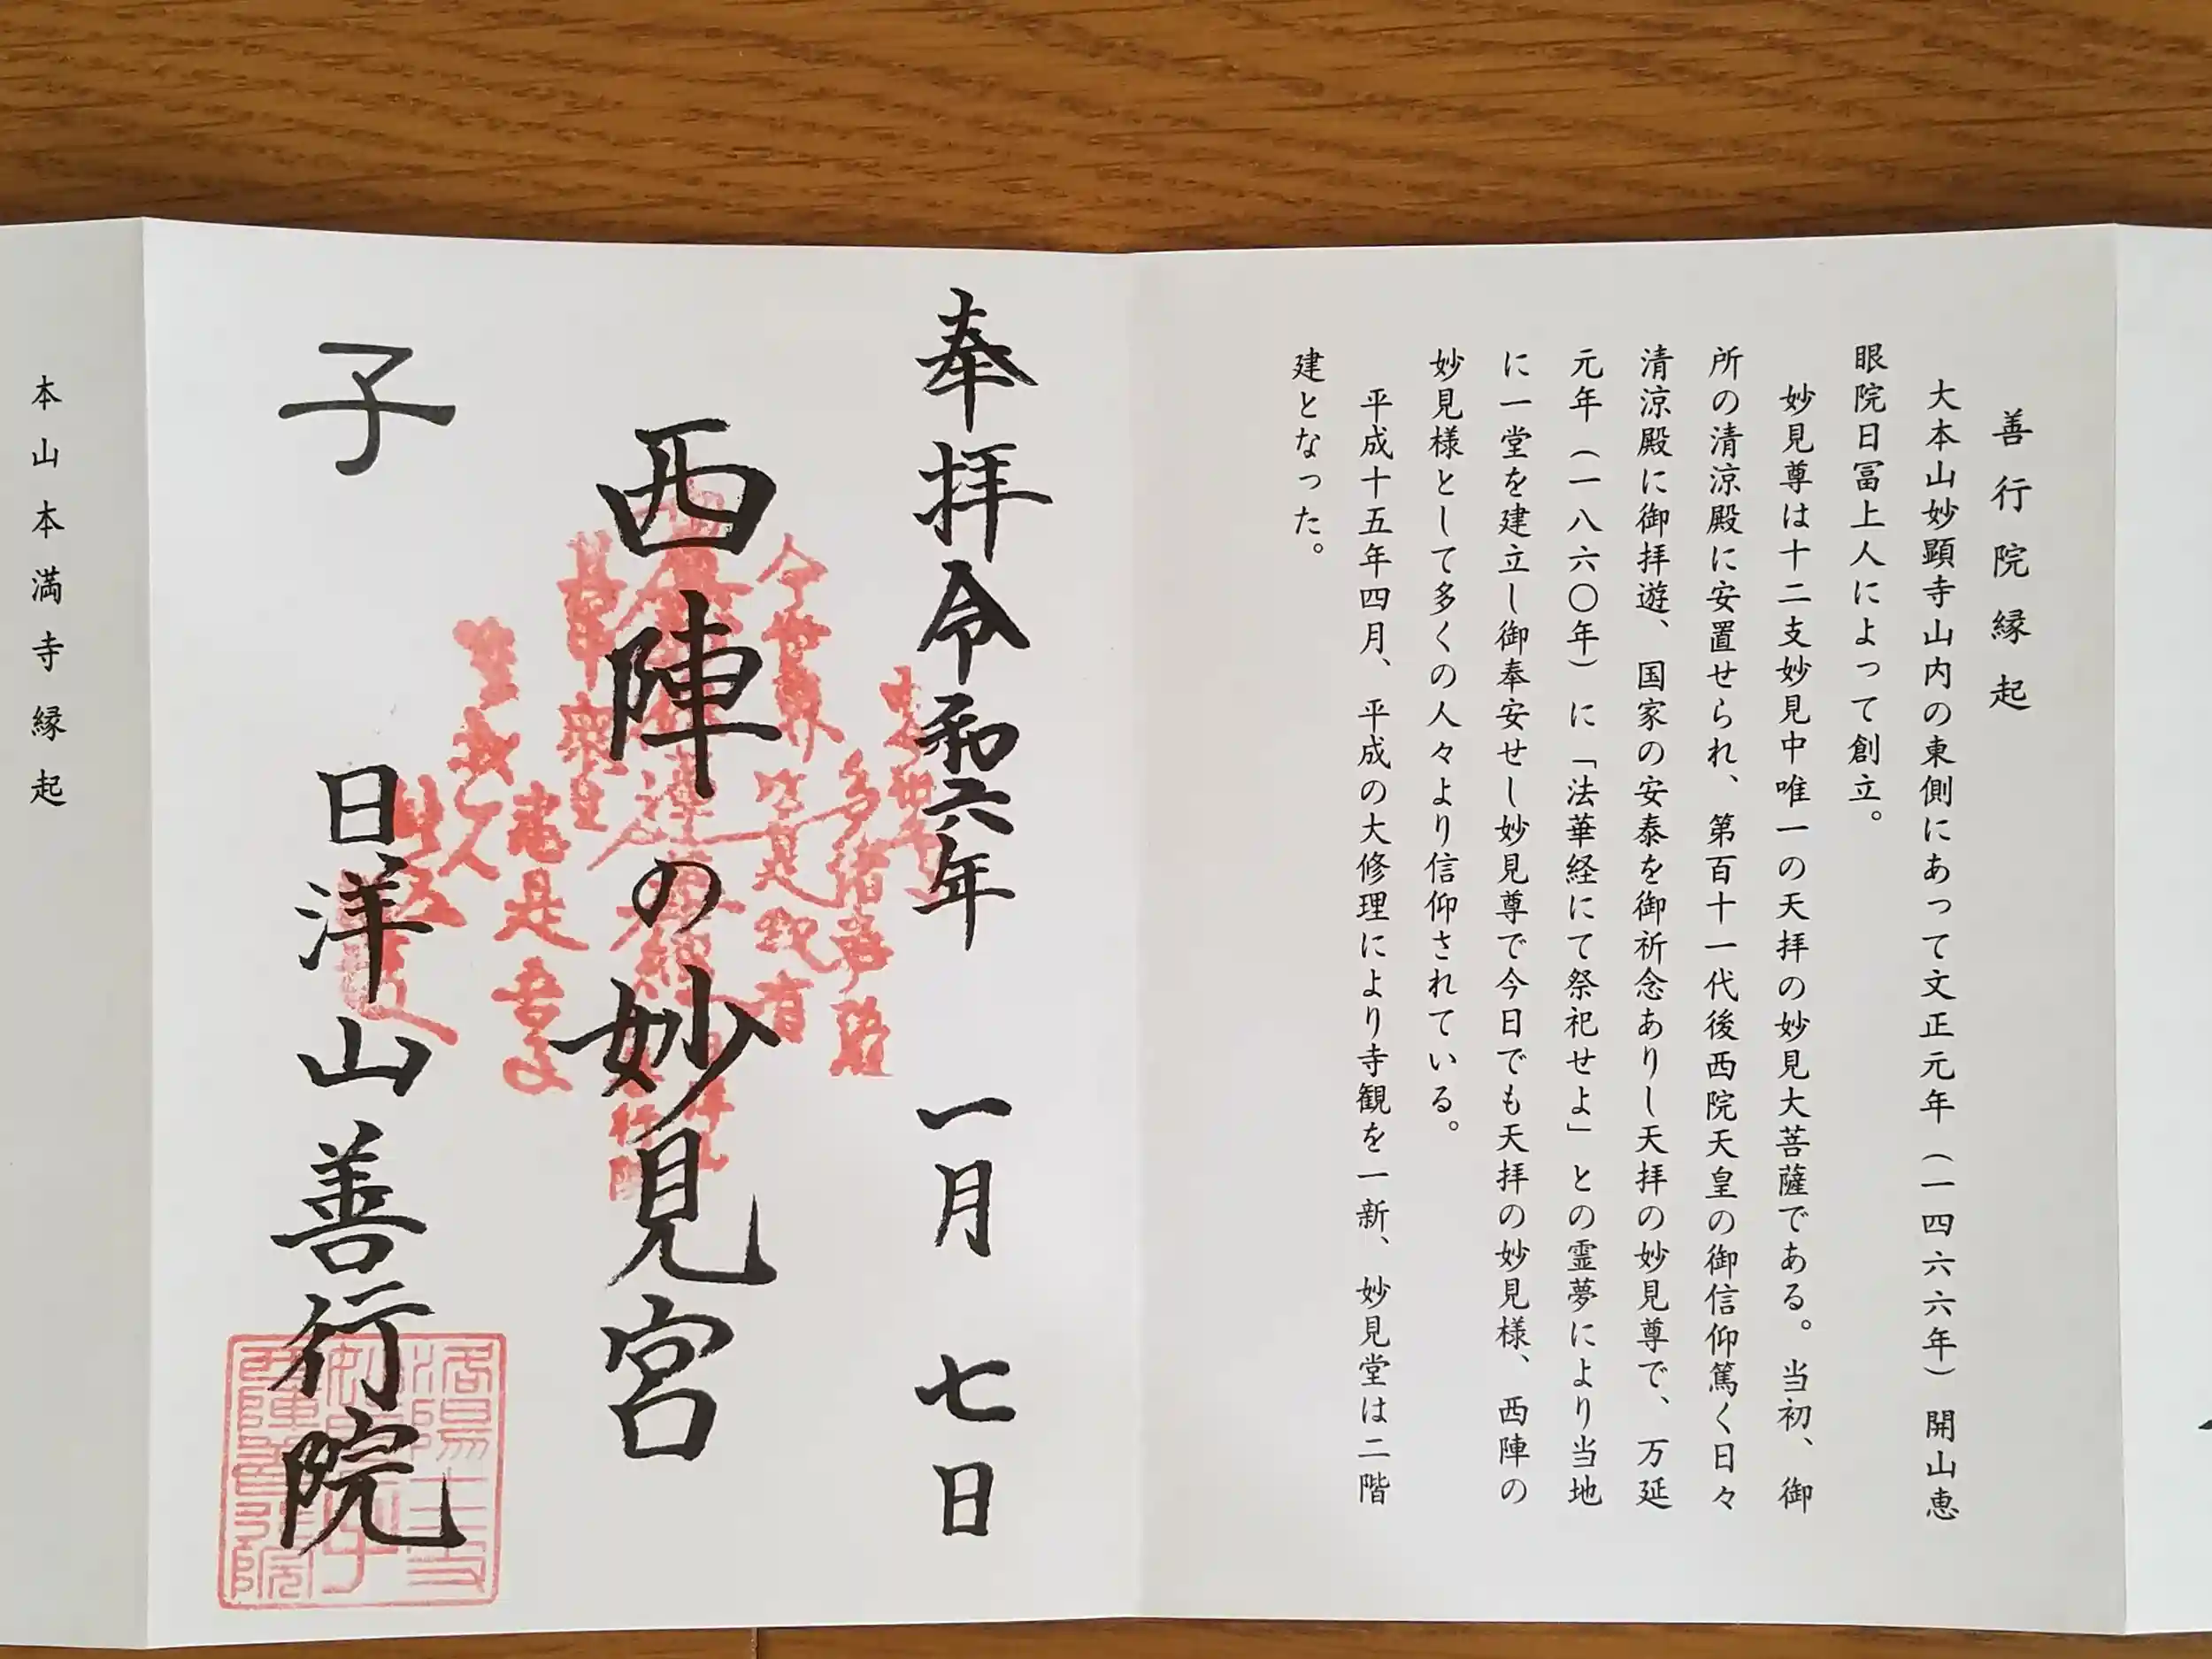 善行院縁起
大本山妙顕寺山内の東側にあって文正元年（一四六六年）開山恵
眼院日冨上人によって創立。
妙見尊は十二支妙見中唯一の天拝の妙見大菩薩である。当初、御
所の清涼殿に安置せられ、第百十一代後西院天皇の御信仰篤く日々
清涼殿に御拝遊、国家の安泰を御祈念ありし天拝の妙見尊で、万延
元年（一八六〇年）に「法華経にて祭祀せよ」との霊夢により当地
に一堂を建立し御奉安せし妙見尊で今日でも天拝の妙見様、西陣の
妙見様として多くの人々より信仰されている。
平成十五年四月、平成の大修理により寺観を一新、妙見堂は二階
建となった。
奉拝令和六年 一月 七日
西陣の妙見宮
子
日洋山善行院
本山本満寺縁起